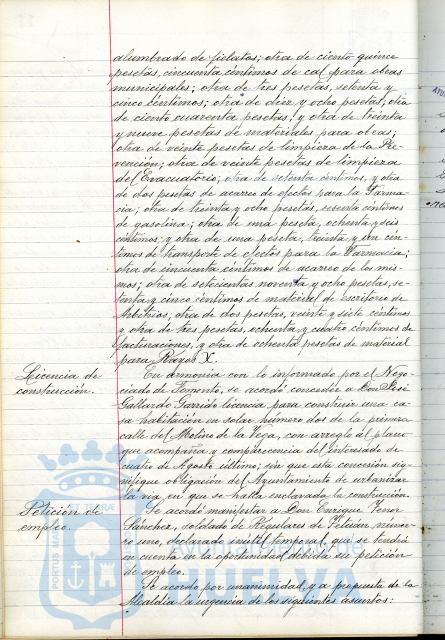 alumbrado de filatos; otra de ciento quince
pesetas, cincuenta céntimos de cal para obras
municipales; otra de tres pesetas, setenta y
cinco céntimos; otra de diez y ocho pesetas; otra
de ciento cuarenta pesetas; y otra de treinta
y nueve pesetas de materiales para obras;
otra de veinte pesetas de limpieza de la Pre-
vención; otra de veinte pesetas de limpieza
del Evacuatorio; otra de setenta céntimos, y otra
de dos pesetas de acarreo de efectos para la Farma-
cia; otra de treinta y ocho pesetas, céntimos
de gasolina; otra de una peseta, ochenta y seis
céntimos; y otra de una peseta, treinta y cén-
timos de transporte de efectos para la Farmacia;
otra de cincuenta céntimos de acarreo de los mis-
mos; otra de setecientas noventa y ocho pesetas, se-
tenta y cinco céntimos de material de escritorio de
Arbitrios; otra de dos pesetas, veinte y siete céntimos
y otra de tres pesetas, ochenta y cuatro céntimos de
facturaciones, y otra de ochenta pesetas de material
para Rayos X.
Licencia de construcción.
En armonia con lo informado por el Nego-
ciado de Fomento, se acordó conceder a Don José
Gallardo Garrido licencia para construir una ca-
sa-habitación en solar número dos de la primera
calle del Molino de la Vega, con arreglo al plano
que acompaña y comparecencia del interesado de
cuatro de Agosto último; sin que esta concesión sig-
nifique obligación del Ayuntamiento de urbanizar
la via en que se halla enclavada la construcción.
Petición de empleo.
Se acordó manifestar a Don Enrique
Sánchez, soldado de Regulares de Tetuán núme-
ro uno, declarado inútil temporal, que se tendrá
en cuenta en la oportunidad debida su petición
de empleo.
Se acordo por unanimidad, y a propuesta de la
Alcaldia la urgencia de los siguientes asuntos: